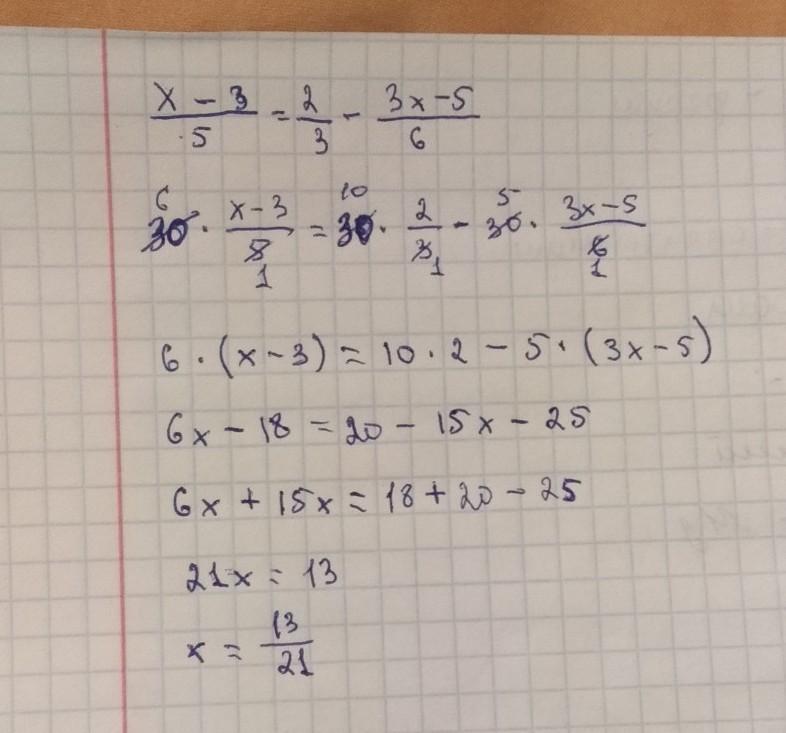 x - 3 / 5 = 2 / 3 - 3x - 5 / 6
6 10 5
30 · x - 3 / 5 = 30 · 2 / 3 - 30 · 3x - 5 / 6
1 1 1
6 · (x - 3) = 10 · 2 - 5 · (3x - 5)
6x - 18 = 20 - 15x - 25
6x + 15x = 18 + 20 - 25
21x = 13
x = 13 / 21